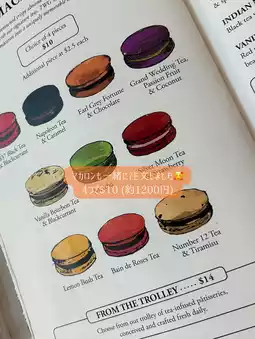 Choice of 4 pieces
$10
Additional piece at $2.5 each
Grand Wedding Tea,
Passion Fruit
& Coconut
Earl Grey Fortune
& Chocolate
Napoleon Tea
& Caramel
Tea
& Blackcurrant
Moon Tea
マカロンも一緒に注文しましたら
4つで$10 (約1200円)
Vanilla Bourbon Tea
& Blackcurrant
Number 12 Tea
& Tiramisu
Bain de Roses Tea
Lemon Bush Tea
FROM THE TROLLEY ..... $14
Choose from our trolley of tea infused pâtisseries,
conceived and crafted fresh daily.
INDIAN
Black tea
VAN
Red